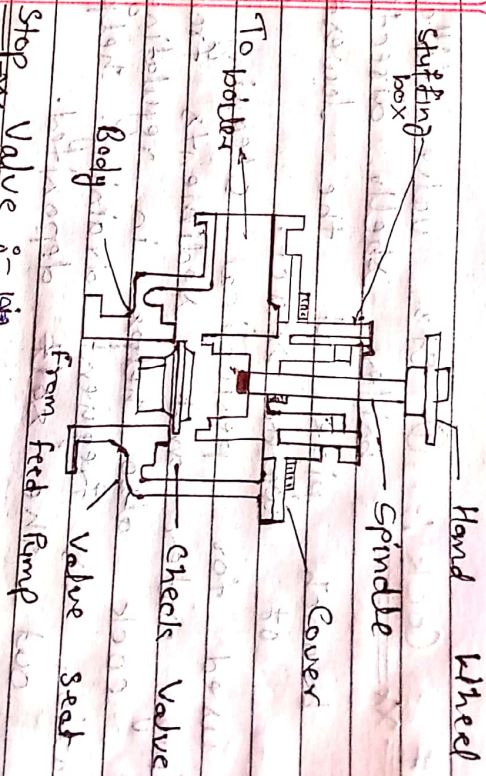 Hand Wheel
Stuffing
box
Spindle
Cover
To boiler
Check Valve
Body
Valve Seat
From feed Pump
Stop Valve :-